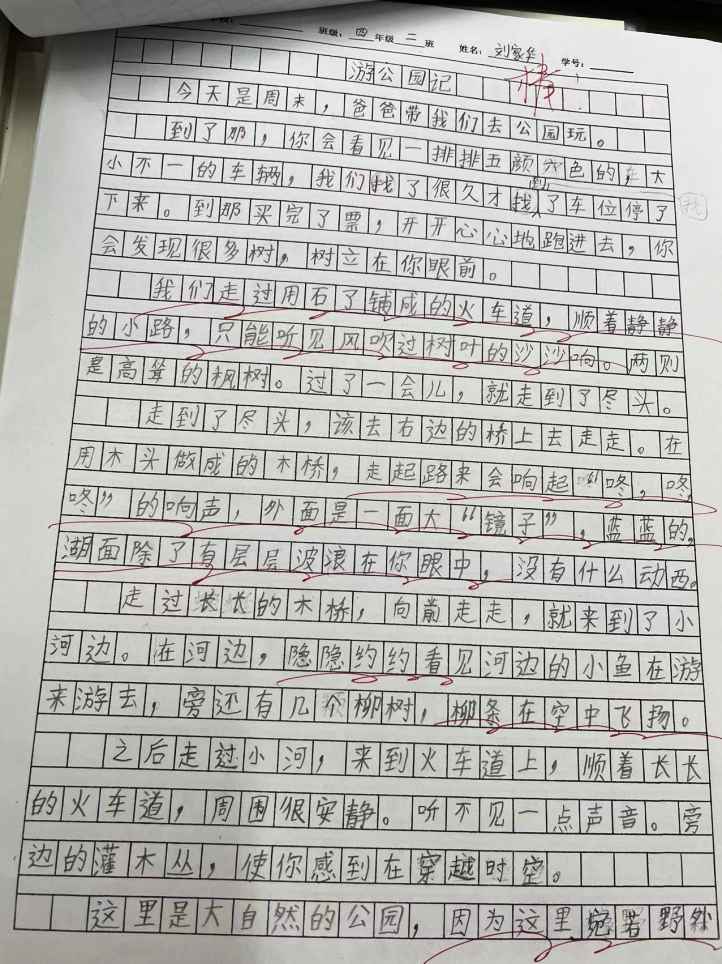 班级：四年级二班 姓名：刘家华 学号：
游公园记
今天是周末，爸爸带我们去公园玩。
到了那，你会看见一排排五颜六色的，大
小不一的车辆，我们找了很久才找到了车位停了
下来。到那买完了票，开开心心地跑进去，你
会发现很多树，树立在你眼前。
我们走过用石了铺成的火车道，顺着静静
的小路，只能听见风吹过树叶的沙沙响。两则
是高耸的枫树。过了一会儿，就走到了尽头。
走到了尽头，该去右边的桥上去走走。在
用木头做成的木桥，走起路来会响起“咚，咚，
咚”的响声，外面是一面大“镜子”，蓝蓝的，
湖面除了有层层波浪在你眼中，没有什么动西。
走过长长的木桥，向前走走，就来到了小
河边。在河边，隐隐约约看见河边的小鱼在游
来游去，旁还有几个柳树，柳条在空中飞扬。
之后走过小河，来到火车道上，顺着长长
的火车道，周围很安静。听不见一点声音。旁
边的灌木丛，使你感到在穿越时空。
这里是大自然的公园，因为这里宛若野外